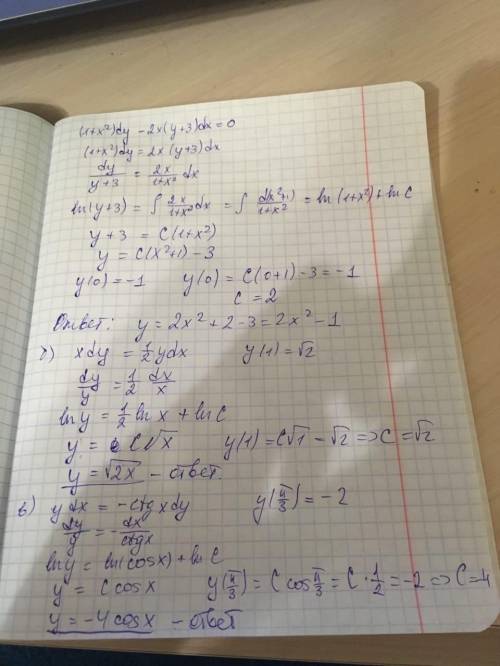 (1+x²)dy - 2x(y+3)dx = 0
(1+x²)dy = 2x(y+3)dx
dy/(y+3) = 2x/(1+x²) dx
ln(y+3) = ∫ 2x/(1+x²) dx = ∫ d(x²+1)/(1+x²) = ln(1+x²) + ln C
y+3 = C(1+x²)
y = C(x²+1) - 3
y(0) = -1 y(0) = C(0+1) - 3 = -1
C = 2
Ответ: y = 2x² + 2 - 3 = 2x² - 1
б) xdy = 1/2 ydx y(1) = √2
dy/y = 1/2 dx/x
ln y = 1/2 ln x + ln C
y = C√x y(1) = C√1 - √2 => C = √2
y = √2x - ответ.
в) ydx = -ctgxdy y(π/3) = -2
dy/y = -dx/ctgx
ln y = ln(cosx) + ln C
y = C cosx y(π/3) = C cos π/3 = C · 1/2 = -2 => C = 4
y = -4cosx - ответ